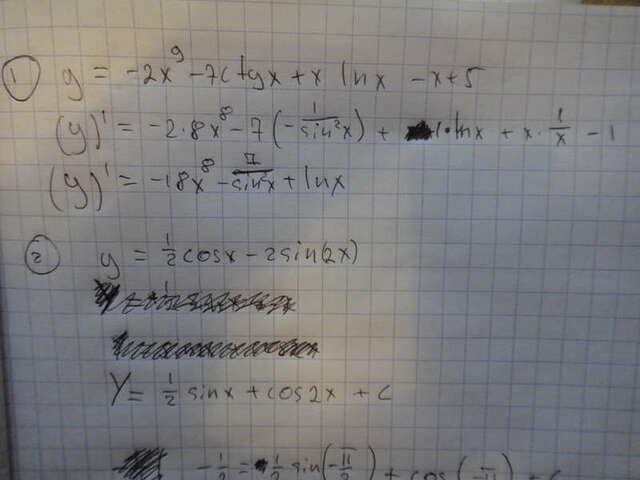 1 y = -2x⁹ - 7ctgx + x lnx - x + 5
(y)' = -2·8x⁸ - 7(-1/sin²x) + 1·lnx + x·1/x - 1
(y)' = -18x⁸ - 7/sin²x + lnx
2 y = 1/2 cosx - 2sin(2x)
Y = 1/2 sinx + cos2x + C
-1/2 = 1/2 sin(-π/2) + cos(-π